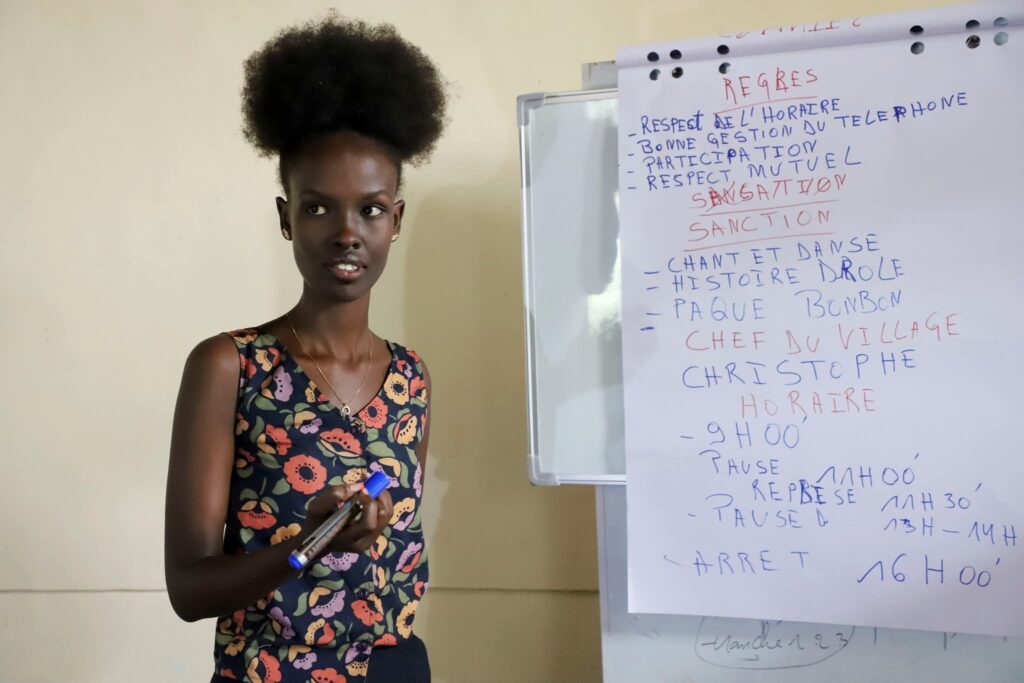 REGLES
- RESPECT DE L'HORAIRE
- BONNE GESTION DU TELEPHONE
- PARTICIPATION
- RESPECT MUTUEL
SANCTION
- CHANT ET DANSE
- HISTOIRE DROLE
- PAQUE BONBON
-
CHEF DU VILLAGE
CHRISTOPHE
HORAIRE
- 9H00'
PAUSE 11H00'
REPRISE 11H30'
- PAUSE D 13H-14H
- ARRET 16H00'
123